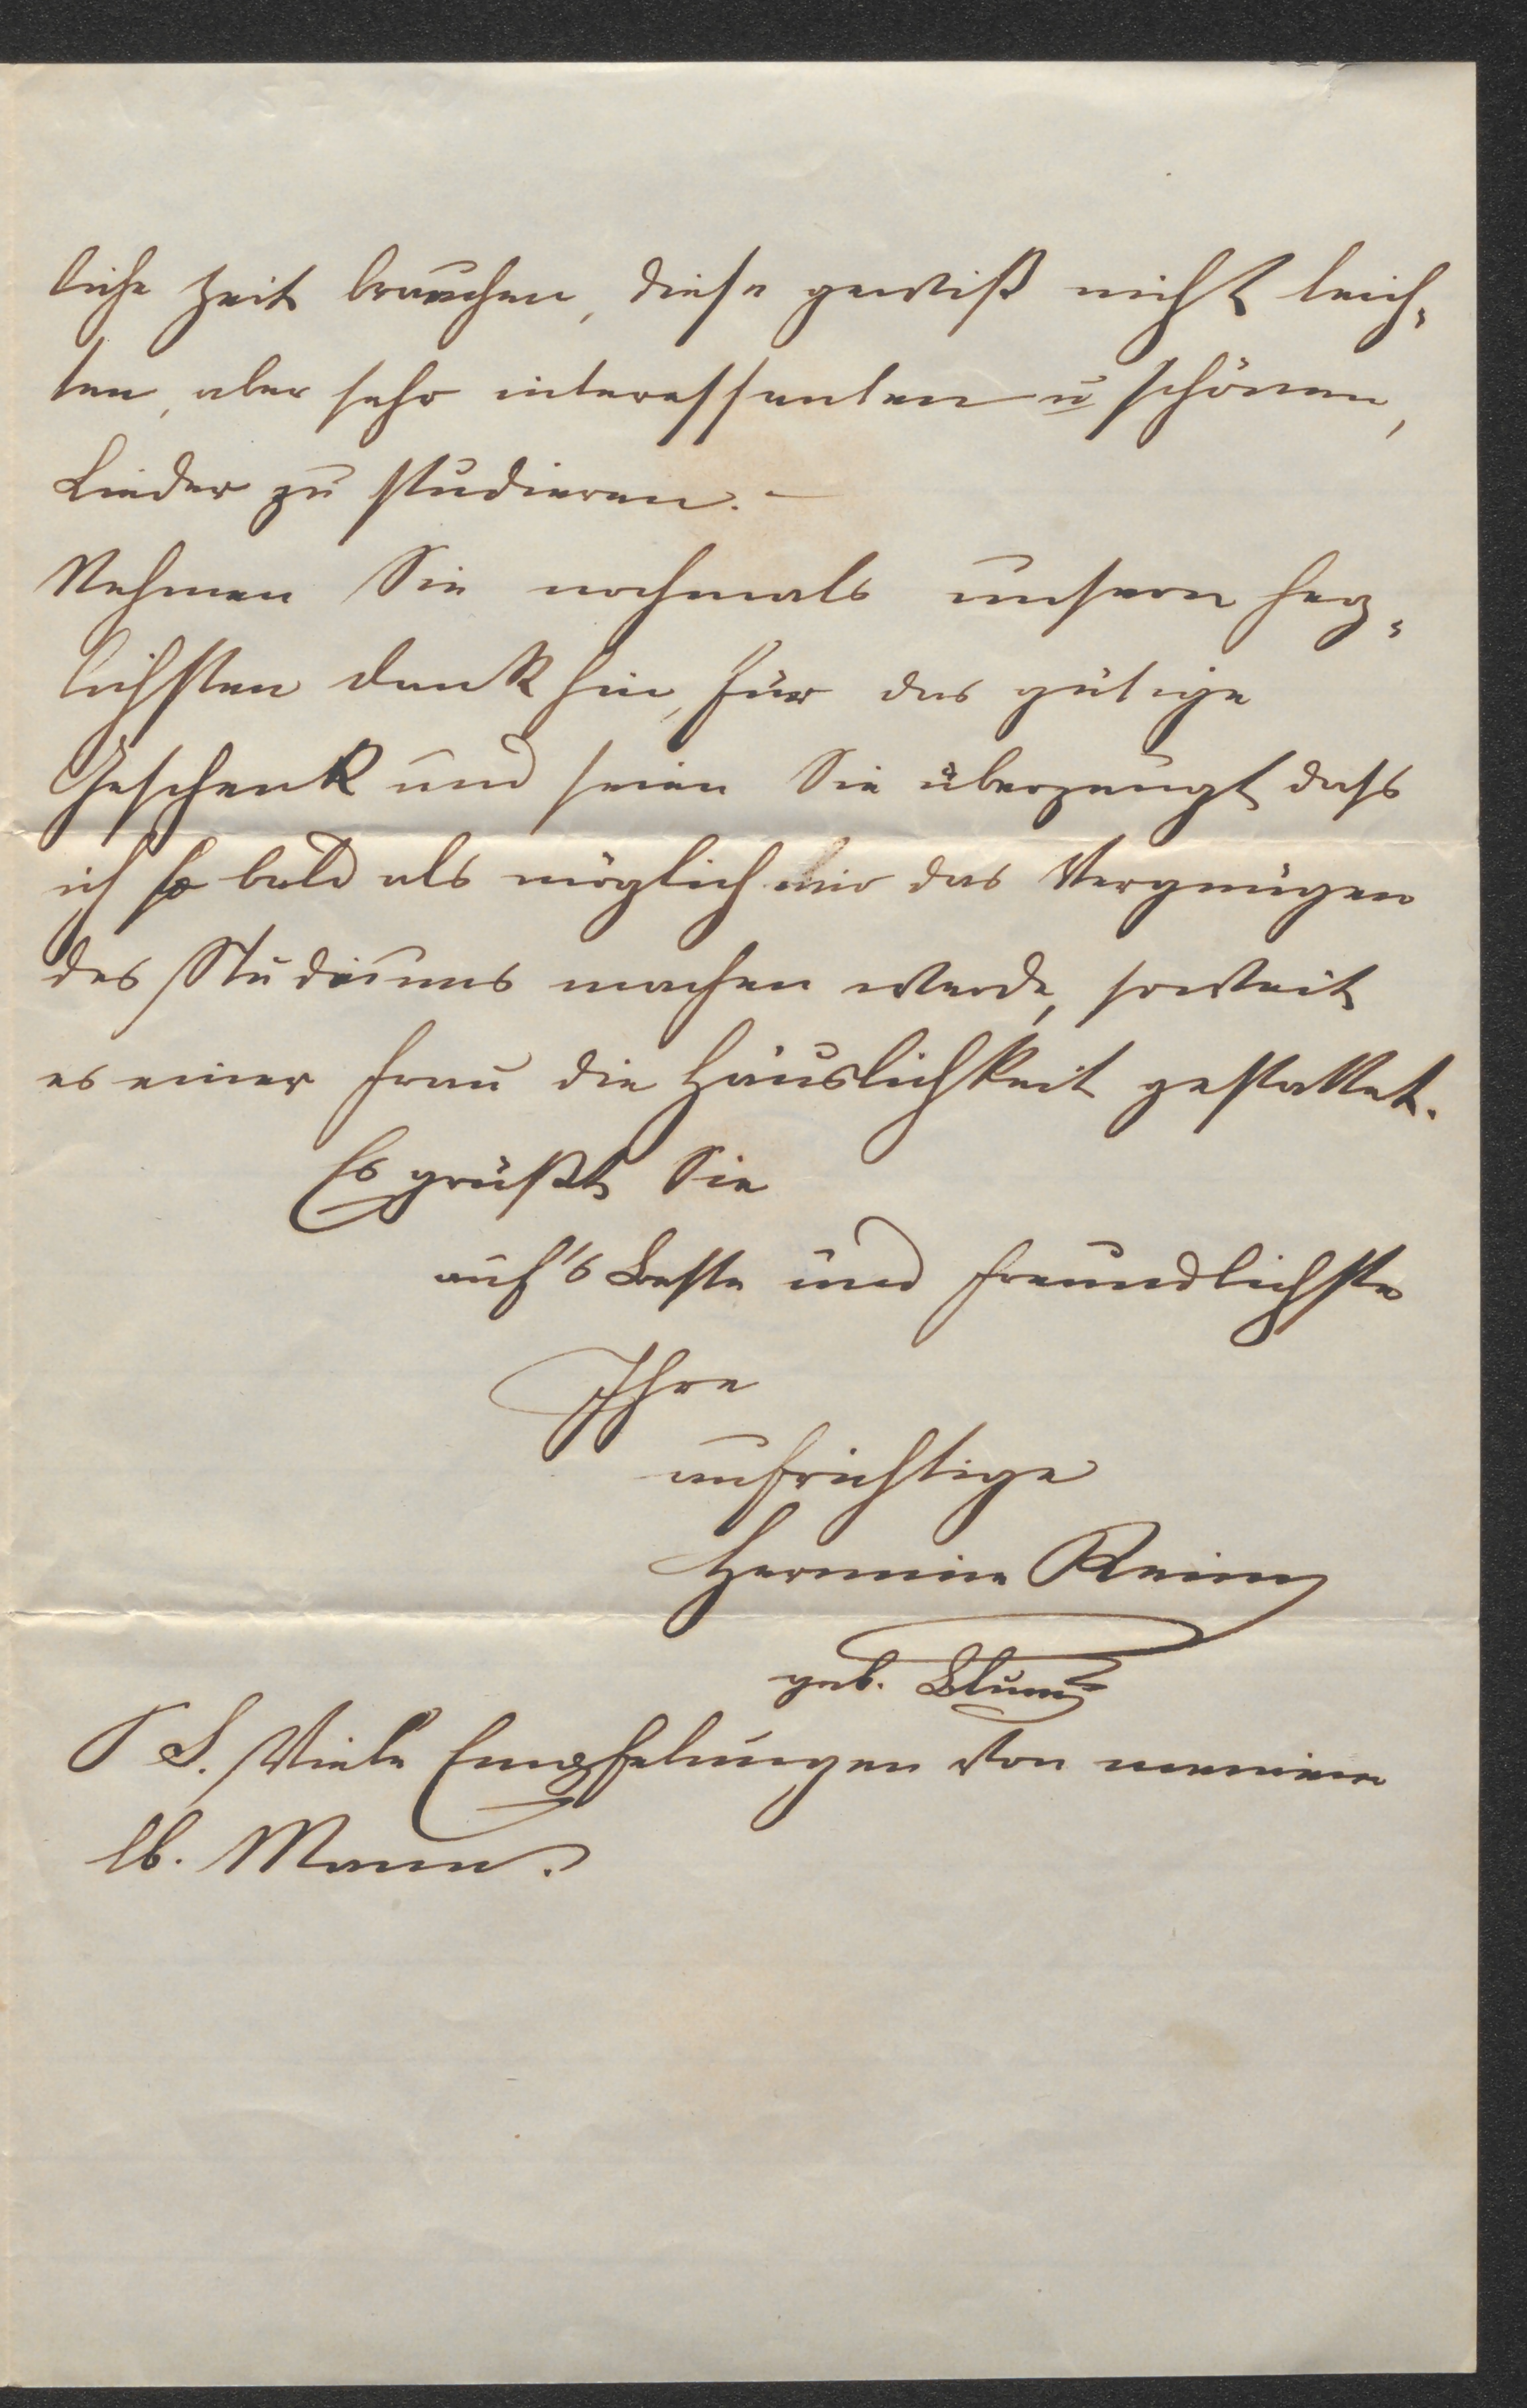 liche Zeit brauchen, diese gewiß nicht leich-
ten, aber sehr interessanten u schönen,
Lieder zu studieren. –
Nehmen Sie nochmals unsern herz-
lichsten Dank hin, für das gütige
Geschenk und seien Sie überzeugt dass
ich so bald als möglich mir das Vergnügen
des Studiums machen werde, soweit
es einer Frau die Häuslichkeit gestattet.
Es grüßt Sie
auf's Beste und freundlichste
Ihre
aufrichtige
Hermine Reim
geb. Blum
P S. Viele Empfelungen von meinem
lb. Mann.